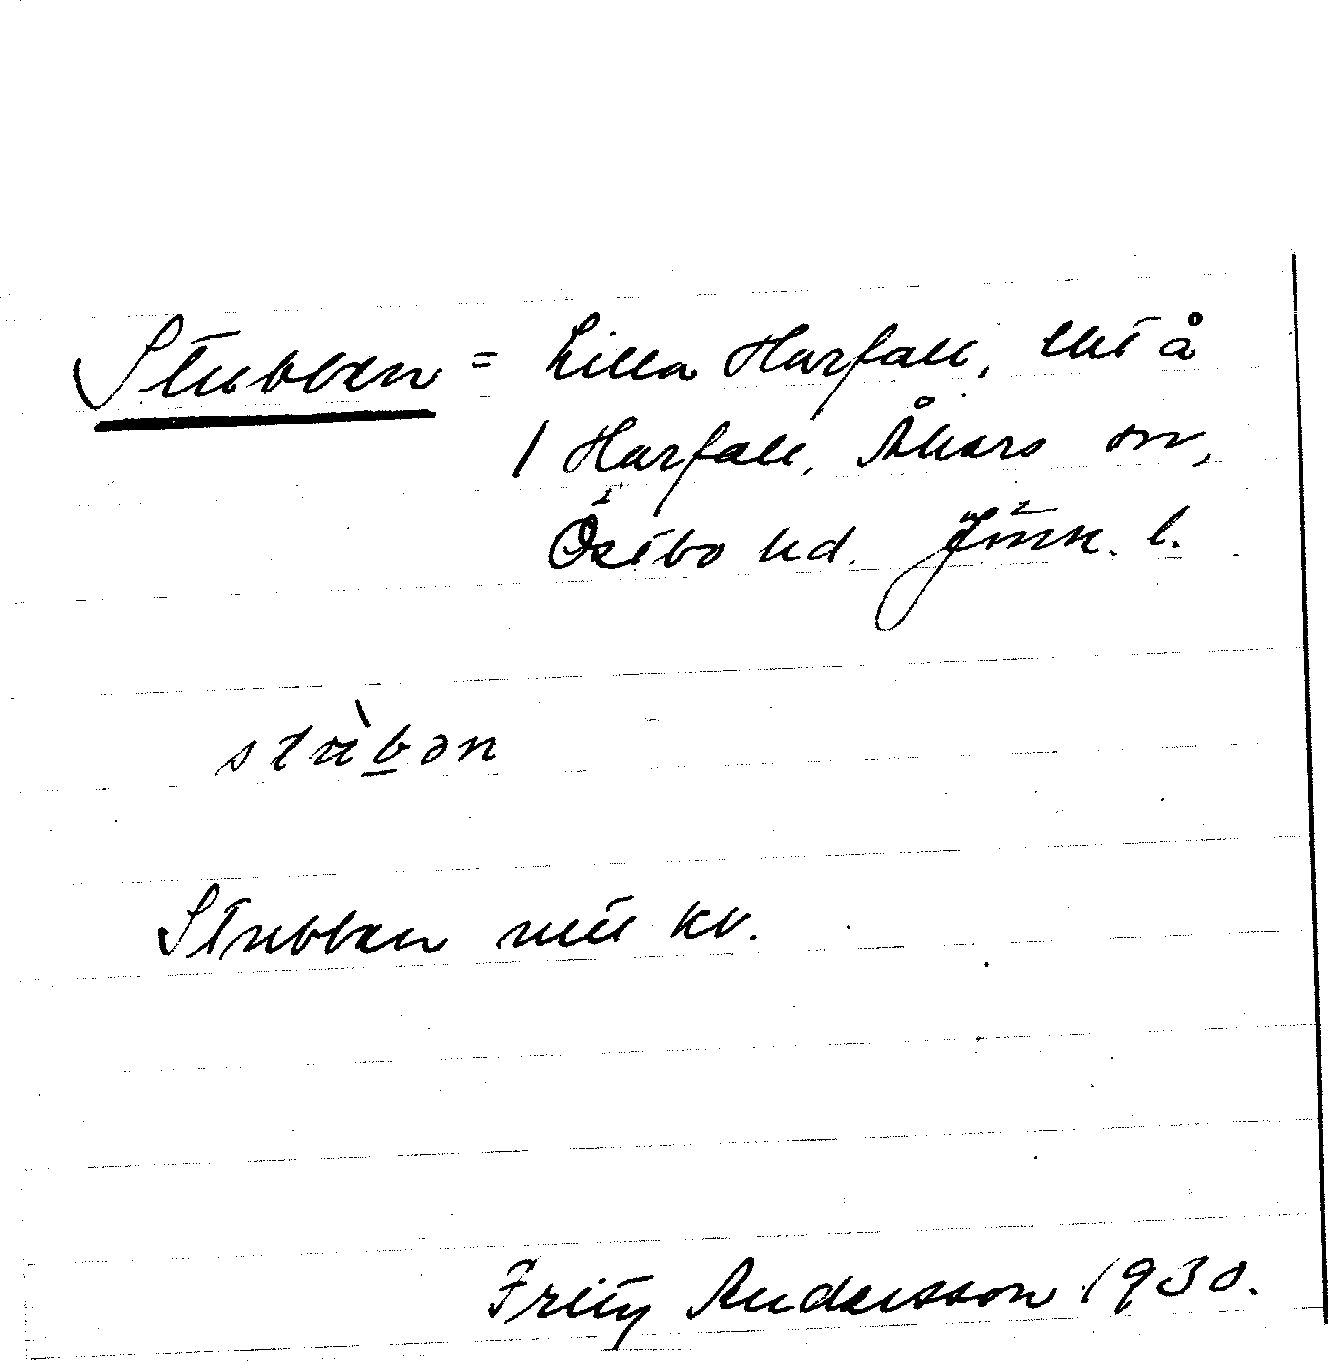 Stubben = Lilla Harfall, tht å
1 Harfall, Åkers sn,
Östbo hd. Jönk. l.
stùb̲ən
Stubben mitt kv.
Fritz Andersson 1930.